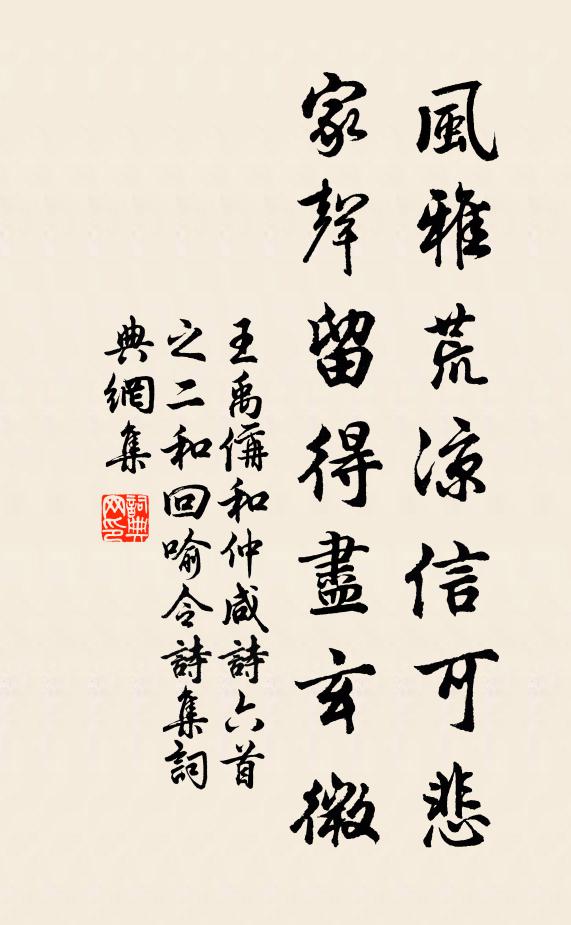 風雅荒涼信可悲
家聲留得盡玄微
王禹偁和仲咸詩六首
之二和回喻令詩集詞
典網集
詞典網印